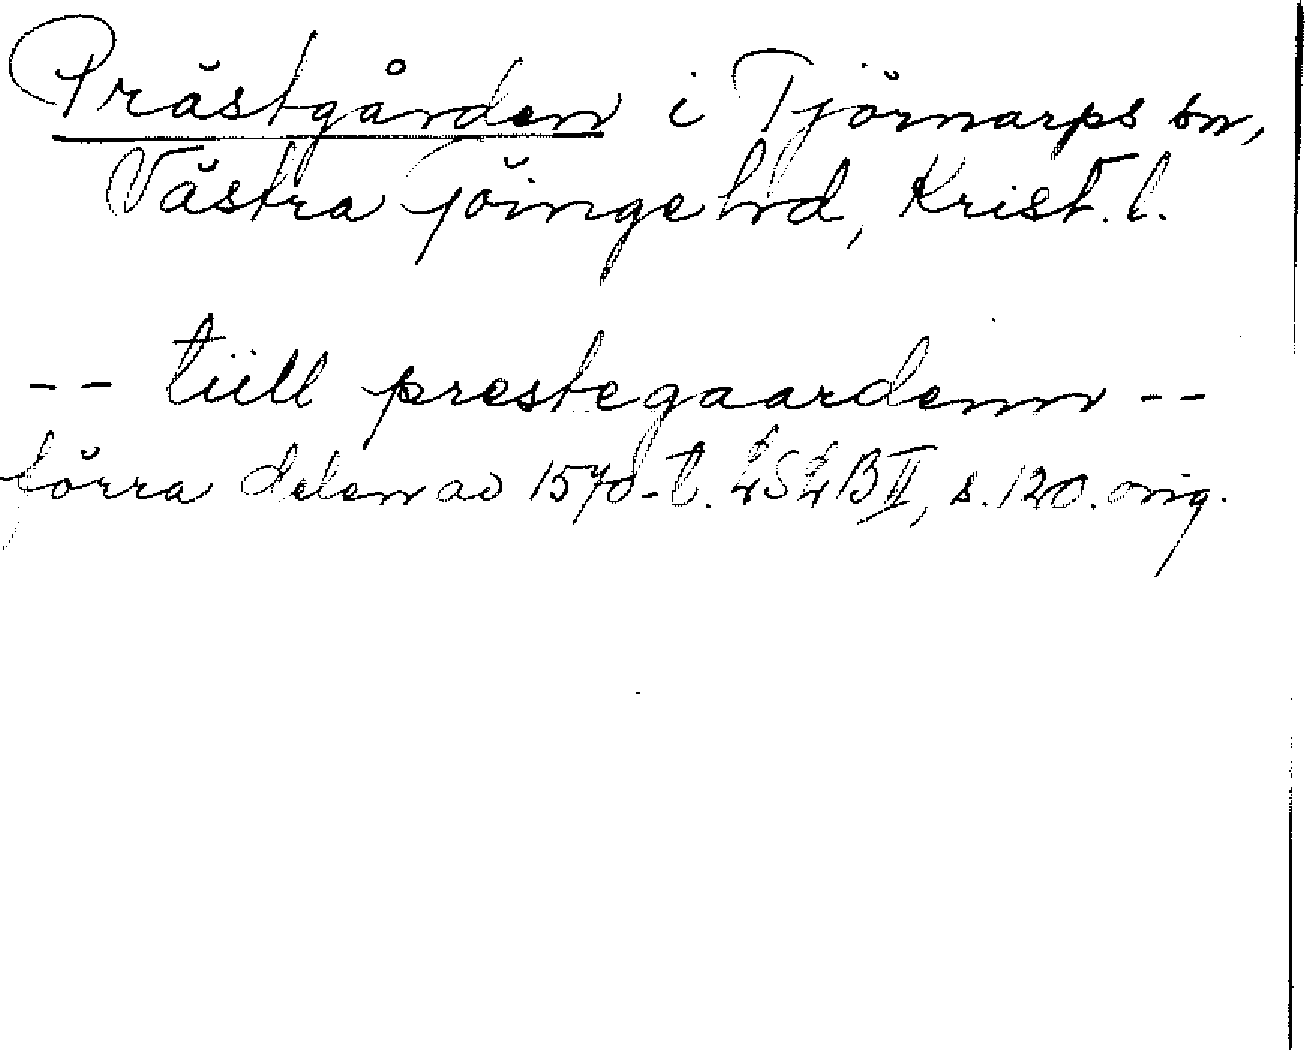 Prästgården i Tjörnarps sn,
Västra Göinge hrd, Krist. l.
-- tiill prestegaardenn --
förra delen av 1570-t. LSLB II, s. 120. orig.